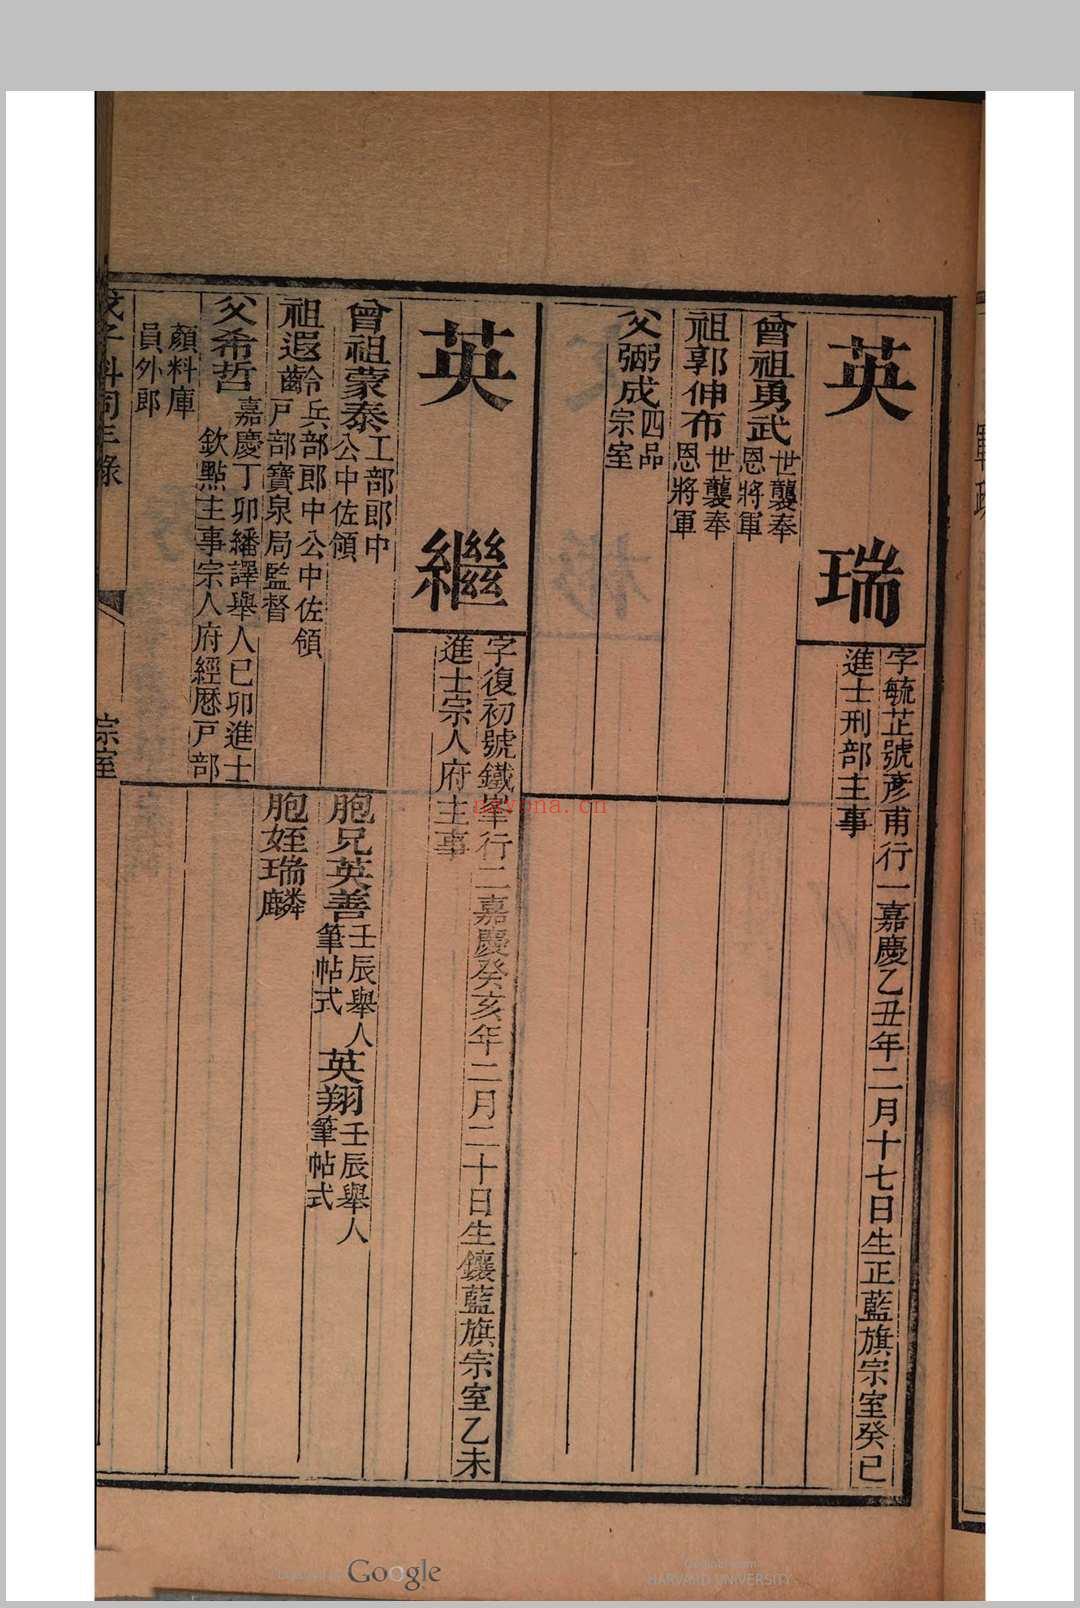 英瑞
字毓芷號彥甫行一嘉慶乙丑年二月十七日生正藍旗宗室癸巳
進士刑部主事
曾祖勇武世襲奉
恩將軍
祖郭伸布世襲奉
恩將軍
父弼成四品
宗室
英繼
字復初號鐵峯行二嘉慶癸亥年二月二十日生鑲藍旗宗室乙未
進士宗人府主事
曾祖蒙泰工部郎中
公中佐領
祖遐齡兵部郎中公中佐領
戶部寶泉局監督
父希哲嘉慶丁卯繙譯舉人己卯進士
欽點主事宗人府經歷戶部
顏料庫
員外郎
胞兄英善壬辰舉人
筆帖式
英翔壬辰舉人
筆帖式
胞姪瑞麟
戊子科同年錄
宗室
nayona.cn
Google
HARVARD UNIVERSITY